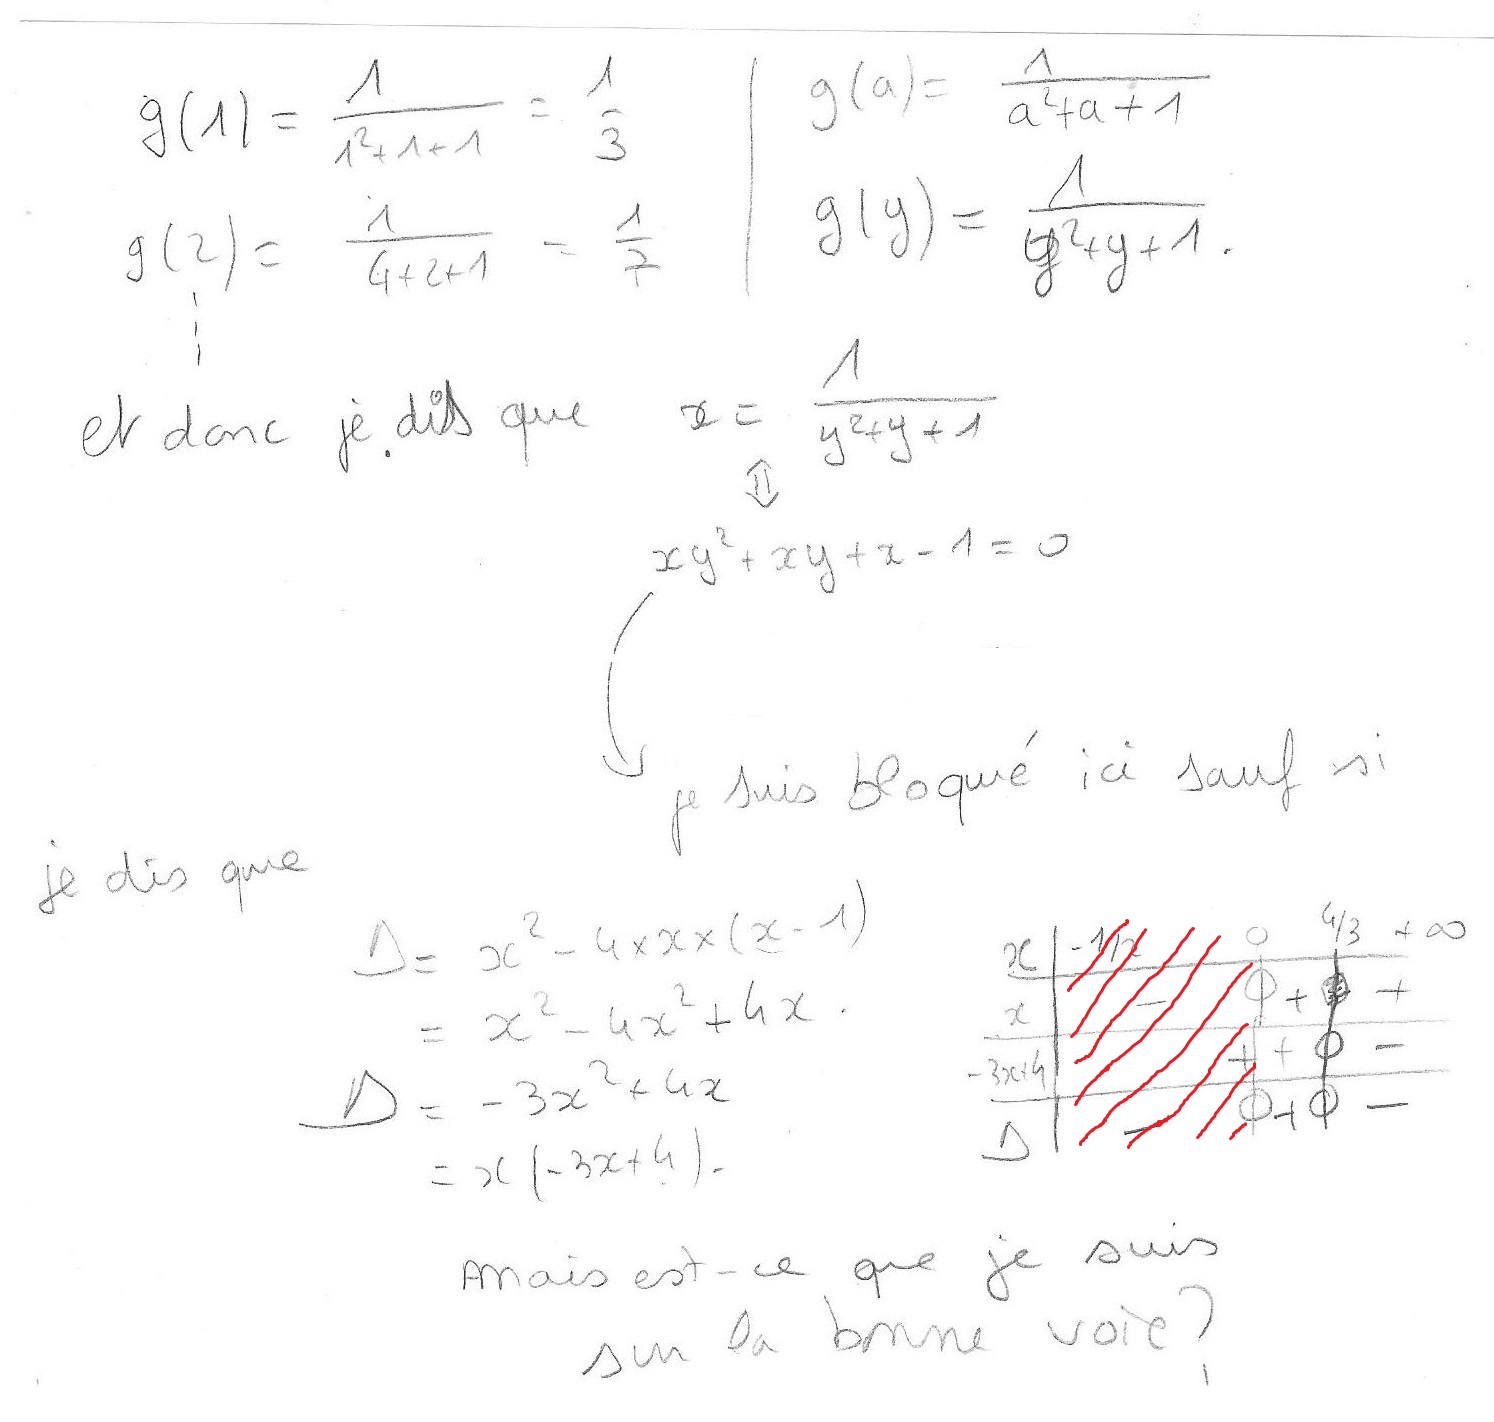 g(1) = 1/(1²+1+1) = 1/3
g(a) = 1/(a²+a+1)
g(2) = 1/(4+2+1) = 1/7
g(y) = 1/(y²+y+1).
et donc je dis que x = 1/(y²+y+1)
⇕
xy²+xy+x-1=0
je suis bloqué ici sauf si
je dis que
Δ = x²-4×x×(x-1)
= x²-4x²+4x.
Δ = -3x²+4x
= x(-3x+4).
x 0 4/3 +∞
x - 0 + +
-3x+4 + + 0 -
Δ - 0 + 0 -
mais est-ce que je suis
sur la bonne voie?